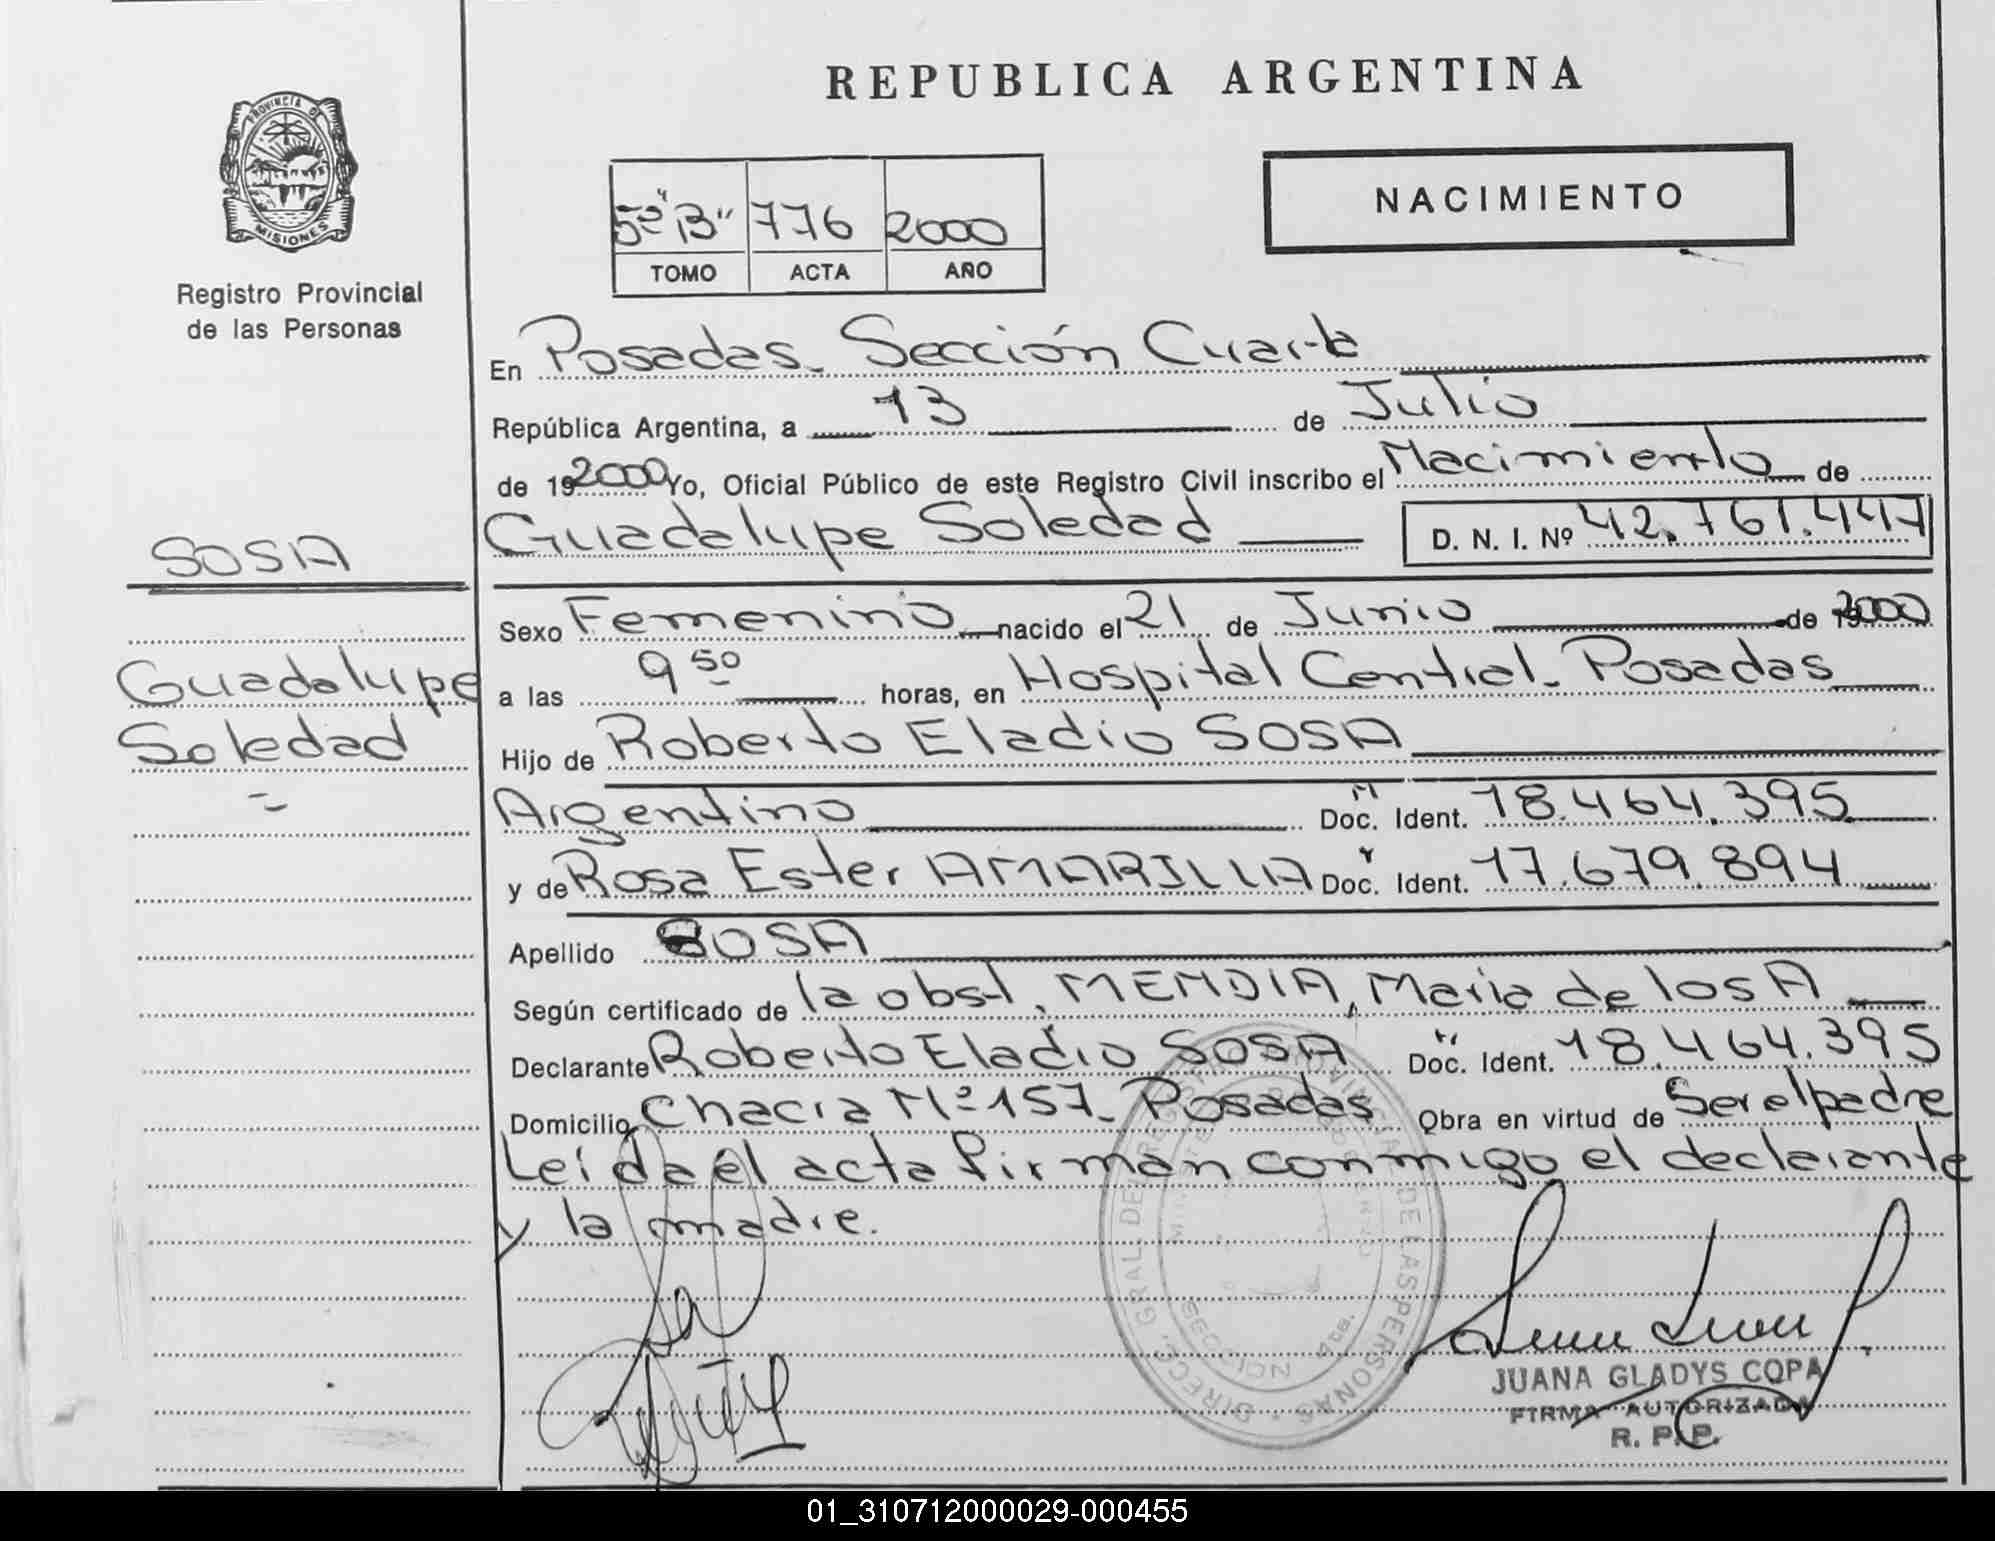 REPUBLICA ARGENTINA
PROVINCIA DE
MISIONES
Registro Provincial
de las Personas
5º "B" 776 2000
TOMO ACTA AÑO
NACIMIENTO
En Posadas. Sección Cuarta
República Argentina, a 13 de Julio
de 192000 Yo, Oficial Público de este Registro Civil inscribo el Nacimiento de
Guadalupe Soledad D. N. I. Nº 42.761.447
SOSA
Guadalupe
Soledad
Sexo Femenino nacido el 21 de Junio de 2000
a las 9 50 horas, en Hospital Central. Posadas
Hijo de Roberto Eladio SOSA
Argentino Doc. Ident. 18.464.395
y de Rosa Ester AMARILLA Doc. Ident. 17.679.894
Apellido SOSA
Según certificado de la obst, MENDIA, Maria de los A
Declarante Roberto Eladio SOSA Doc. Ident. 18.464.395
Domicilio Chacra Nº 157. Posadas Obra en virtud de Ser el padre
Leída el acta firman conmigo el declarante
y la madre.
DIRECC. GRAL. DEL REGISTRO PROVINCIAL DE LAS PERSONAS
SECCION 4ta.
JUANA GLADYS COPA
FIRMA AUTORIZADA
R. P. P.
01_310712000029-000455